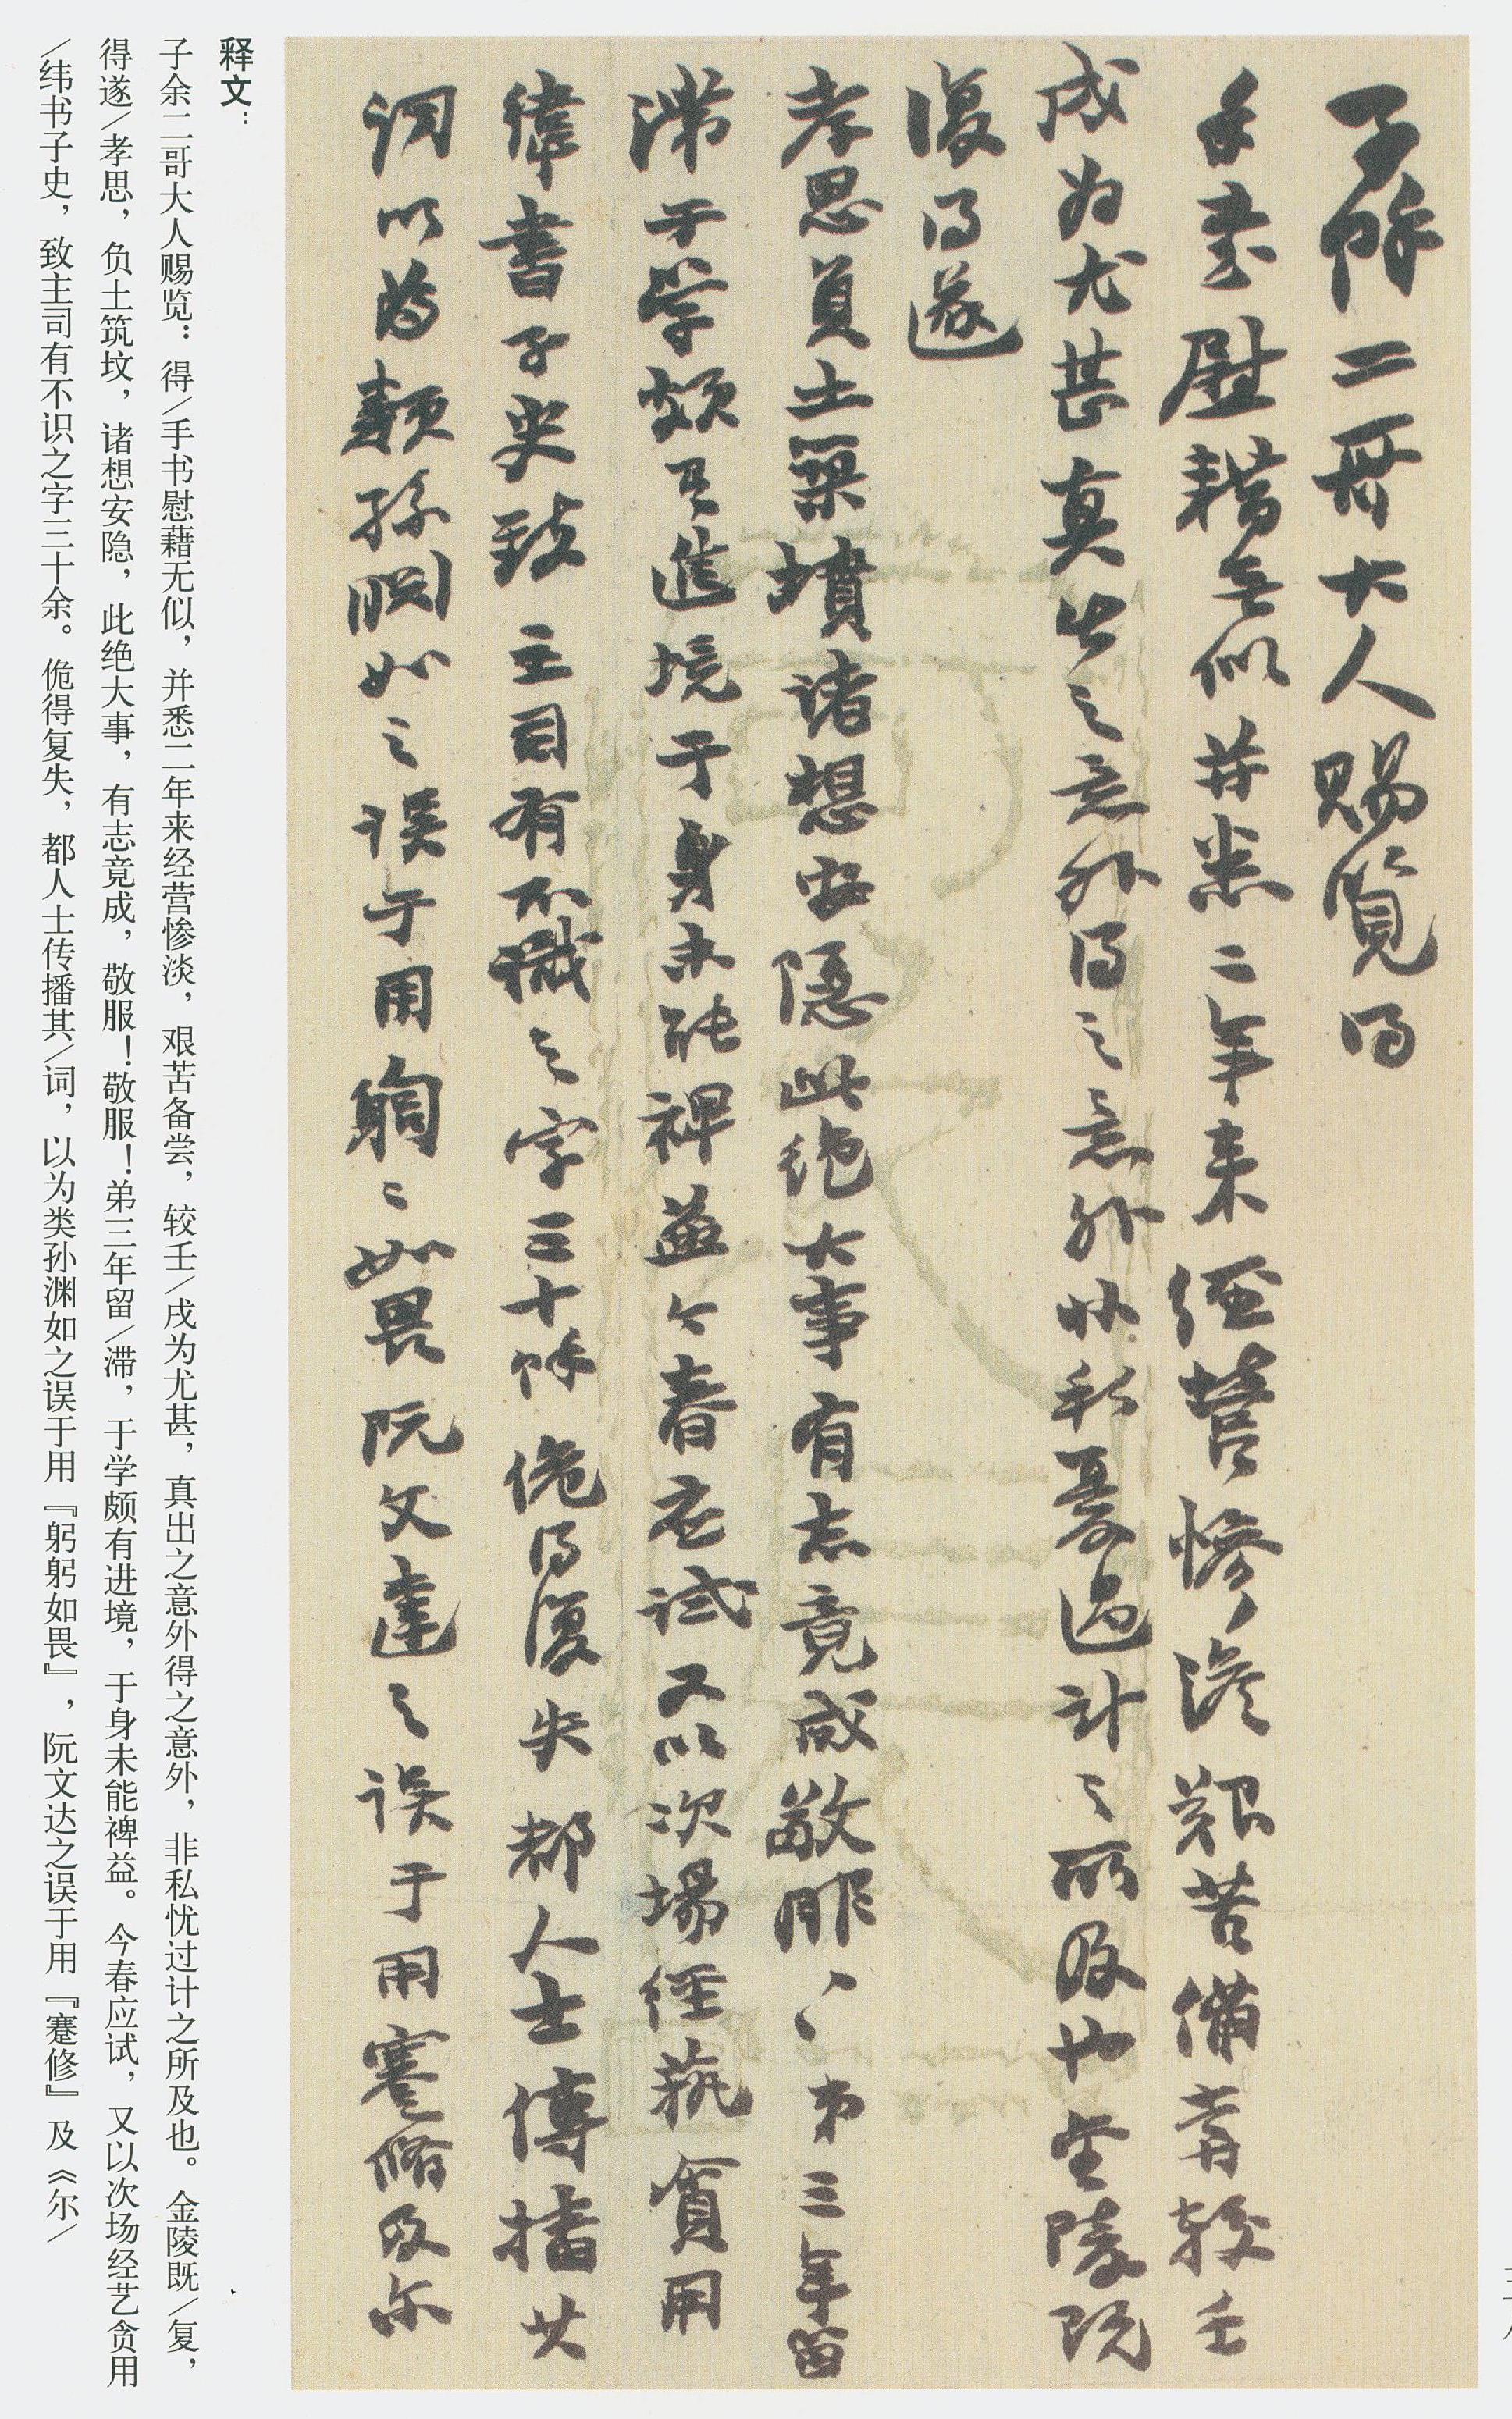 子餘二哥大人賜覽得
手書慰藉無似并悉二年来經營慘澹艱苦備嘗較壬
戌为尤甚真出之意外得之意外非私憂過計之所及也金陵既
復得遂
孝思負土築墳諸想安隱此绝大事有志竟成敬服〻弟三年留
滯于学頗有進境于身未能裨益今春应試又以次場經蓺貪用
緯書子史致主司有不識之字三十餘佹得復失都人士傳播其
词以为類孫渊如之误于用躬〻如畏阮文達之误于用蹇脩及尔
释文：
子余二哥大人赐览：得/手书慰藉无似，并悉二年来经营惨淡，艰苦备尝，较壬/戌为尤甚，真出之意外得之意外，非私忧过计之所及也。金陵既/复，
得遂/孝思，负土筑坟，诸想安隐，此绝大事，有志竟成，敬服！敬服！弟三年留/滞，于学颇有进境，于身未能裨益。今春应试，又以次场经艺贪用
/纬书子史，致主司有不识之字三十余。佹得复失，都人士传播其/词，以为类孙渊如之误于用『躬躬如畏』，阮文达之误于用『蹇修』及《尔/